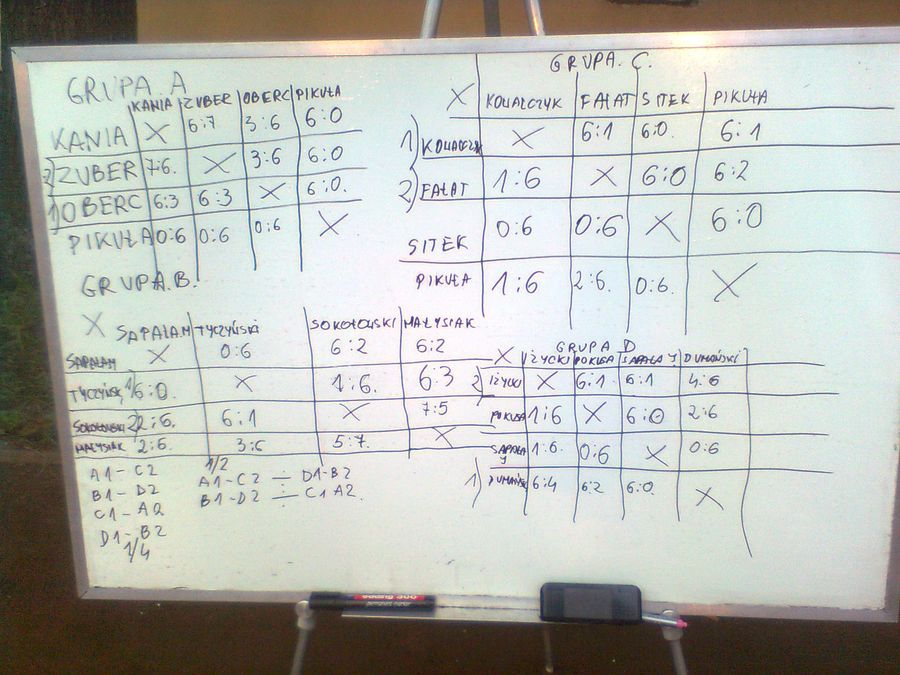 GRUPA. A
KANIA ZUBER OBERC PIKUŁA
KANIA X 6:7 3:6 6:0
2) ZUBER 7:6. X 3:6 6:0
1) OBERC 6:3 6:3 X 6:0.
PIKUŁA 0:6 0:6 0:6 X
GRUPA.B.
X SAPAŁA.M TYCZYŃSKI SOKOŁOWSKI MAŁYSIAK
SAPAŁAM X 0:6 6:2 6:2
TYCZYŃSKI 1) 6:0 X 1:6. 6:3
SOKOŁOWSKI 2) 2:6. 6:1 X 7:5
MAŁYSIAK 2:6. 3:6 5:7. X
A1-C2
B1-D2
C1-A2
D1-B2
1/4
1/2
A1-C2 ÷ D1-B2
B1-D2 ÷ C1 A2.
GRUPA. C.
X KOWALCZYK FAŁAT SITEK PIKUŁA
1) X 6:1 6:0. 6:1
2) FAŁAT 1:6 X 6:0 6:2
SITEK 0:6 0:6 X 6:0
PIKUŁA 1:6 2:6. 0:6. X
GRUPA D
X IŻYCKI POKUSA SAPAŁA J DUMAŃSKI
2) IŻYCKI X 6:1 6:1 4:6
POKUSA 1:6 X 6:0 2:6
SAPAŁA J 1:6. 0:6 X 0:6
1) DUMAŃSKI 6:4 6:2 6:0. X